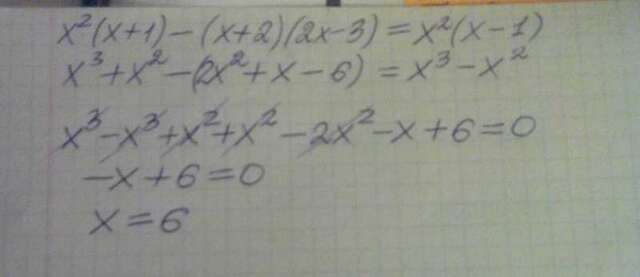 x²(x+1)-(x+2)(2x-3)=x²(x-1)
x³+x²-(2x²+x-6)=x³-x²
x³-x³+x²+x²-2x²-x+6=0
-x+6=0
x=6